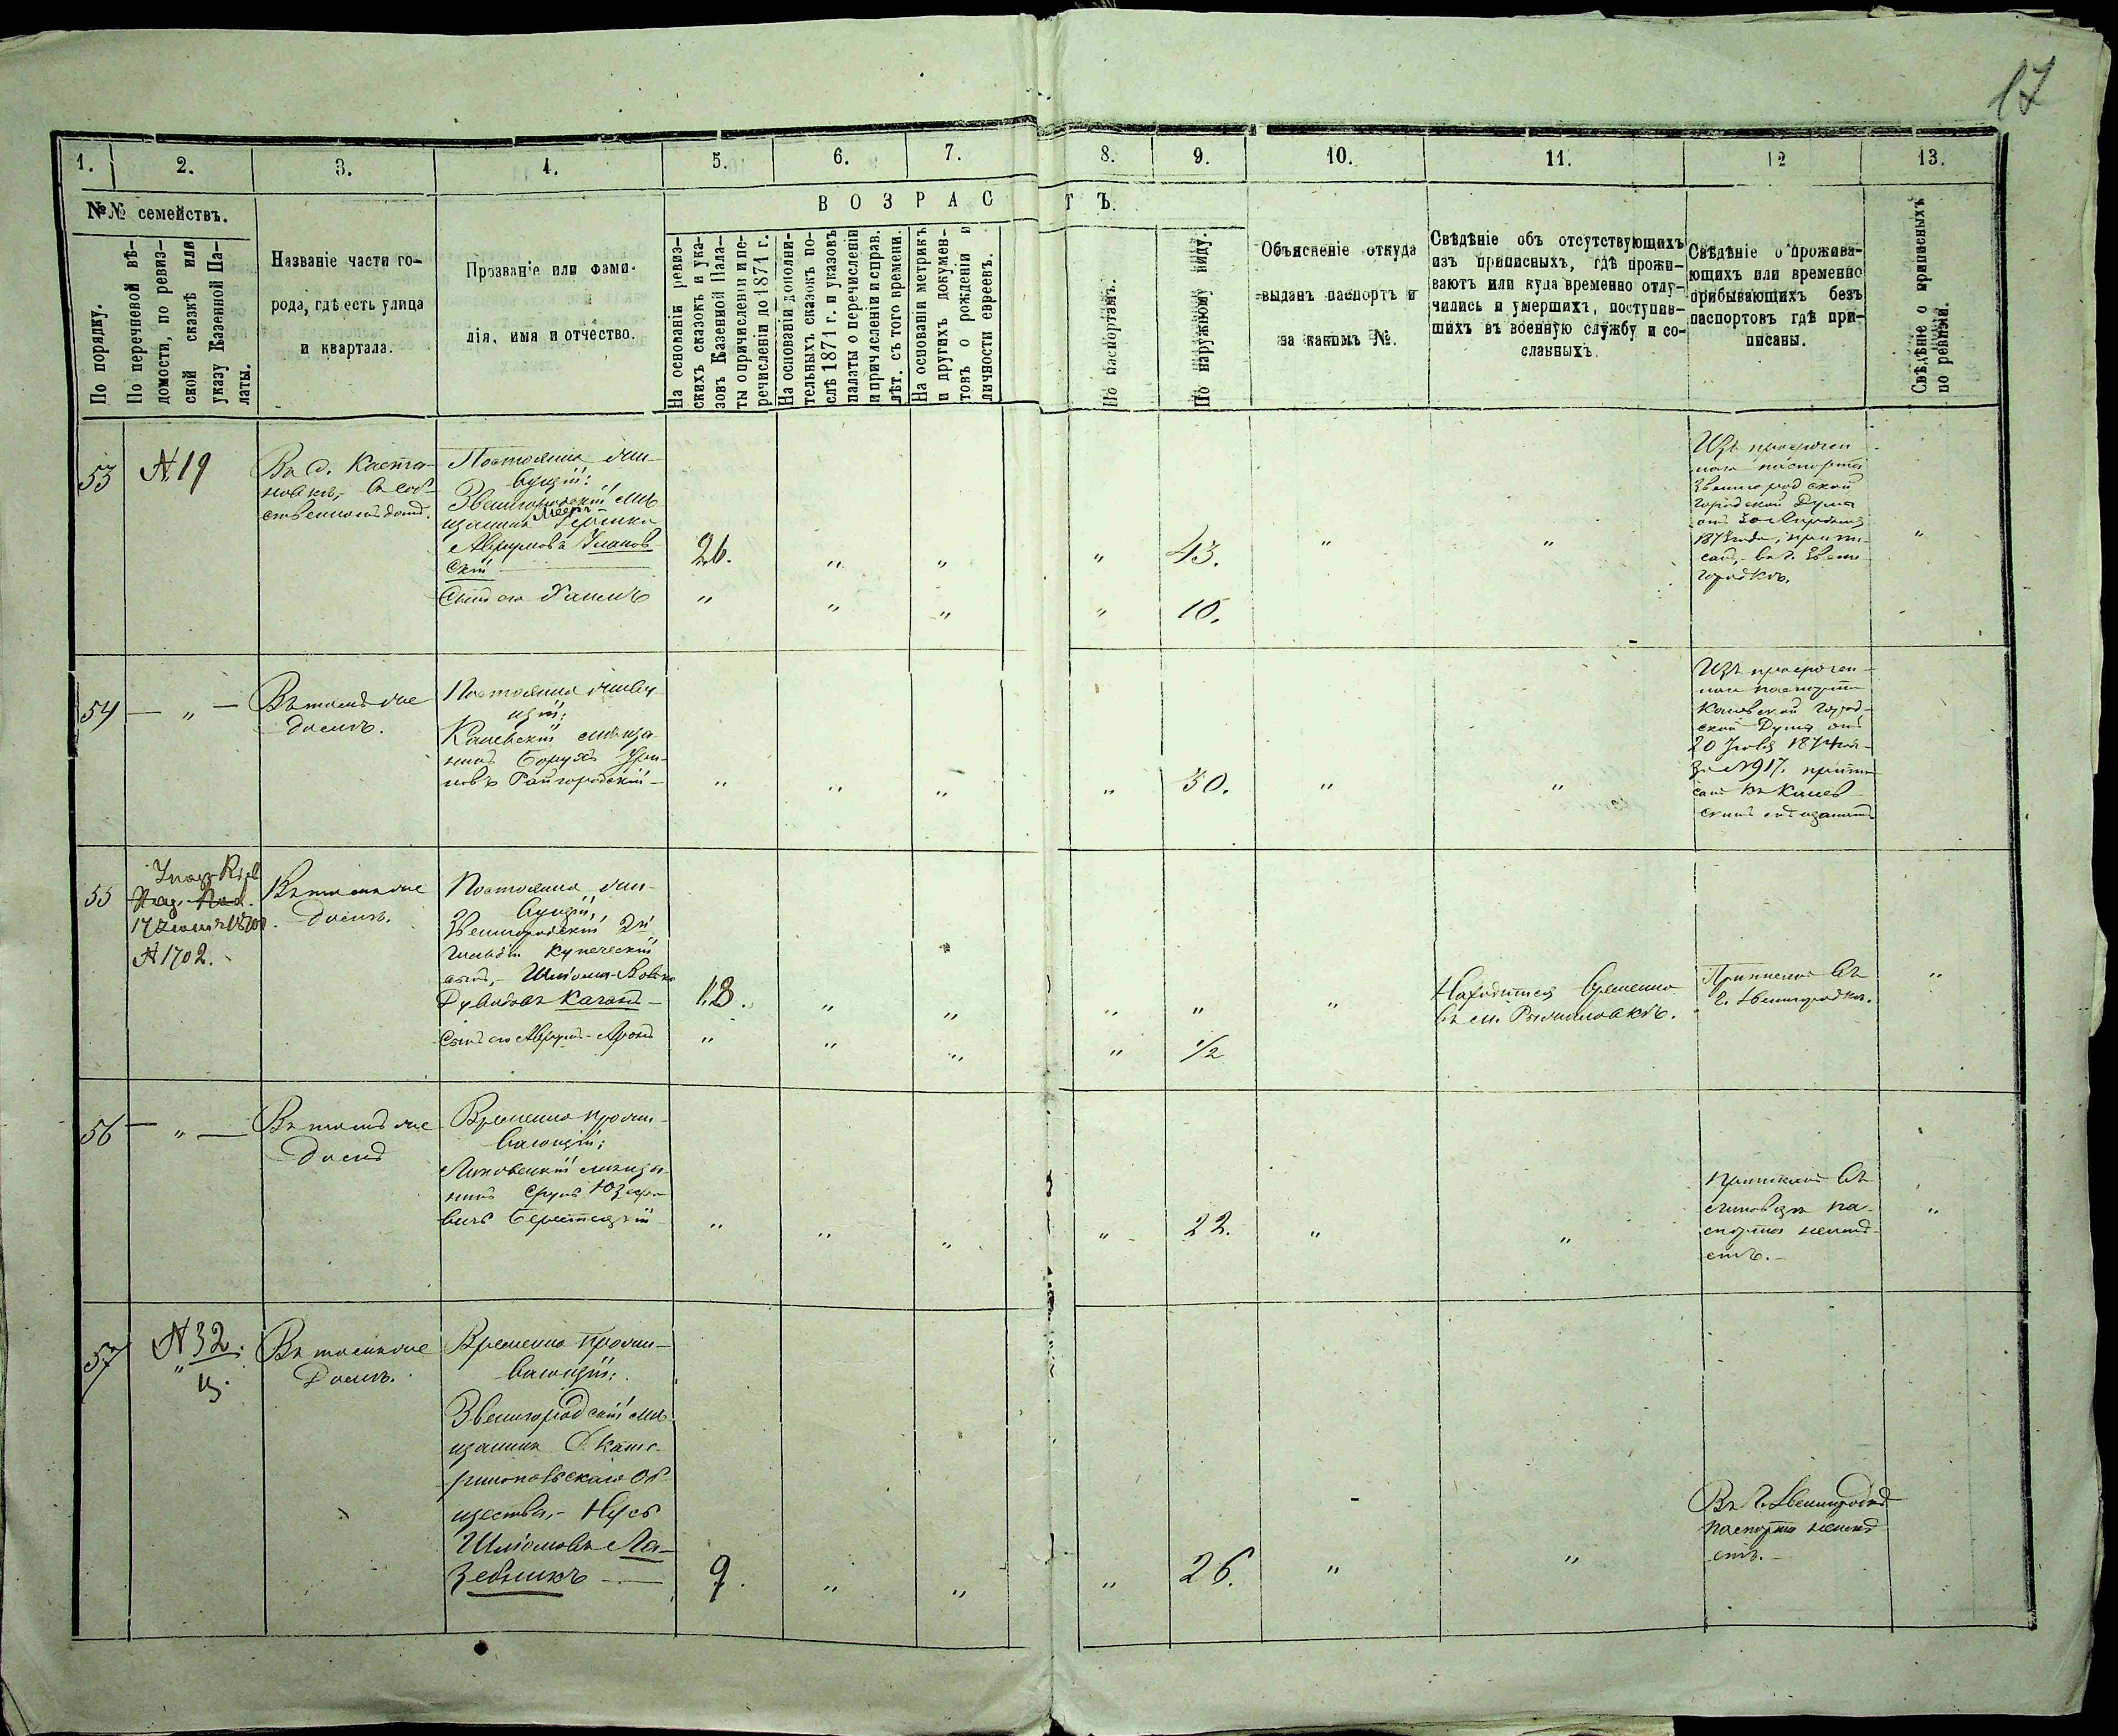 17
1. 2. 3. 4. 5. 6. 7. 8. 9. 10. 11. 12 13.
№№ семействъ.
По порядку.
По перечневой вѣ-
домости, по ревиз-
ской сказкѣ или
указу Казенной Па-
латы.
Названіе части го-
рода, гдѣ есть улица
и квартала.
Прозваніе или фами-
лія, имя и отчество.
ВОЗРАСТЪ.
На основаніи ревиз-
скихъ сказокъ и ука-
зовъ Казенной Пала-
ты о причисленіи и пе-
речисленіи до 1871 г.
На основаніи дополни-
тельныхъ сказокъ по-
слѣ 1871 г. и указовъ
палаты о перечисленіи
и причисленіи и справ.
лѣт. съ того времени.
На основаніи метрикъ
и другихъ докумен-
товъ о рожденіи и
личности евреевъ.
По паспортамъ.
По наружному виду.
Объясненіе откуда
выданъ паспортъ и
за какимъ №.
Свѣдѣніе объ отсутствующихъ
изъ приписныхъ, гдѣ прожи-
ваютъ или куда временно отлу-
чились и умершихъ, поступив-
шихъ въ военную службу и со-
сланныхъ.
Свѣдѣніе о прожива-
ющихъ или временно
прибывающихъ безъ
паспортовъ гдѣ при-
писаны.
Свѣдѣніе о приписныхъ
по ревизіи.
53
№ 19
Въ с.
новкѣ, въ соб-
ственномъ домѣ.
Постоянно жи-
вущій:
Звенигородскій мѣ-
щанинъ Мееръ-Гершко
Аврумовъ Улановскій
26. " " " 43. " " "
Сынъ его
" " " " 10.
Изъ просрочен
наго паспорта
Звенигородской
городской Думы
187 года, припи-
санъ, въ г. Звени-
городкѣ.
54 — " —
Въ томъ же
домѣ.
Постоянно живу-
щій:
Каневскій мѣща-
нинъ Борухъ
Райгородскій —
" " " " 30. " "
Изъ просрочен-
наго паспорта
Каневской Город-
ской Думы отъ
20
за № 917. припи
санъ къ Канев-
скимъ мѣщанамъ
55
Указъ Кіев
Каз. Пал.
17
№ 1702.
Въ томъ же
домѣ.
Постоянно жи-
вущій,
Звенигородскій 2й
гильдіи купеческій
сынъ, -
Дувидовъ Каганъ —
18. " " " " "
Находится временно
въ м. Рыжановкѣ.
Приписанъ въ
г. Звенигородкѣ.
"
Сынъ его Аврумъ-Аронъ
" " " " 1/2
56 — " —
Въ томъ же
домѣ
Временно прожи-
вающій:
Липовецкій мѣща-
нинъ Сруль
вичъ Берестецкій
" " " " 22. " "
Приписанъ въ
Липовцѣ па-
спорта неимѣ-
етъ. —
"
57
№ 32.
"
Въ томъ же
Домѣ.
Временно прожи-
вающій:
Звенигородскій мѣ
щанинъ Екате-
ринопольскаго Об
щества, - Нусъ
Шліомовъ Ла-
зебникъ —
9. " " " 26. " "
Въ г. Звенигородкѣ
паспорта неимѣ
етъ. —